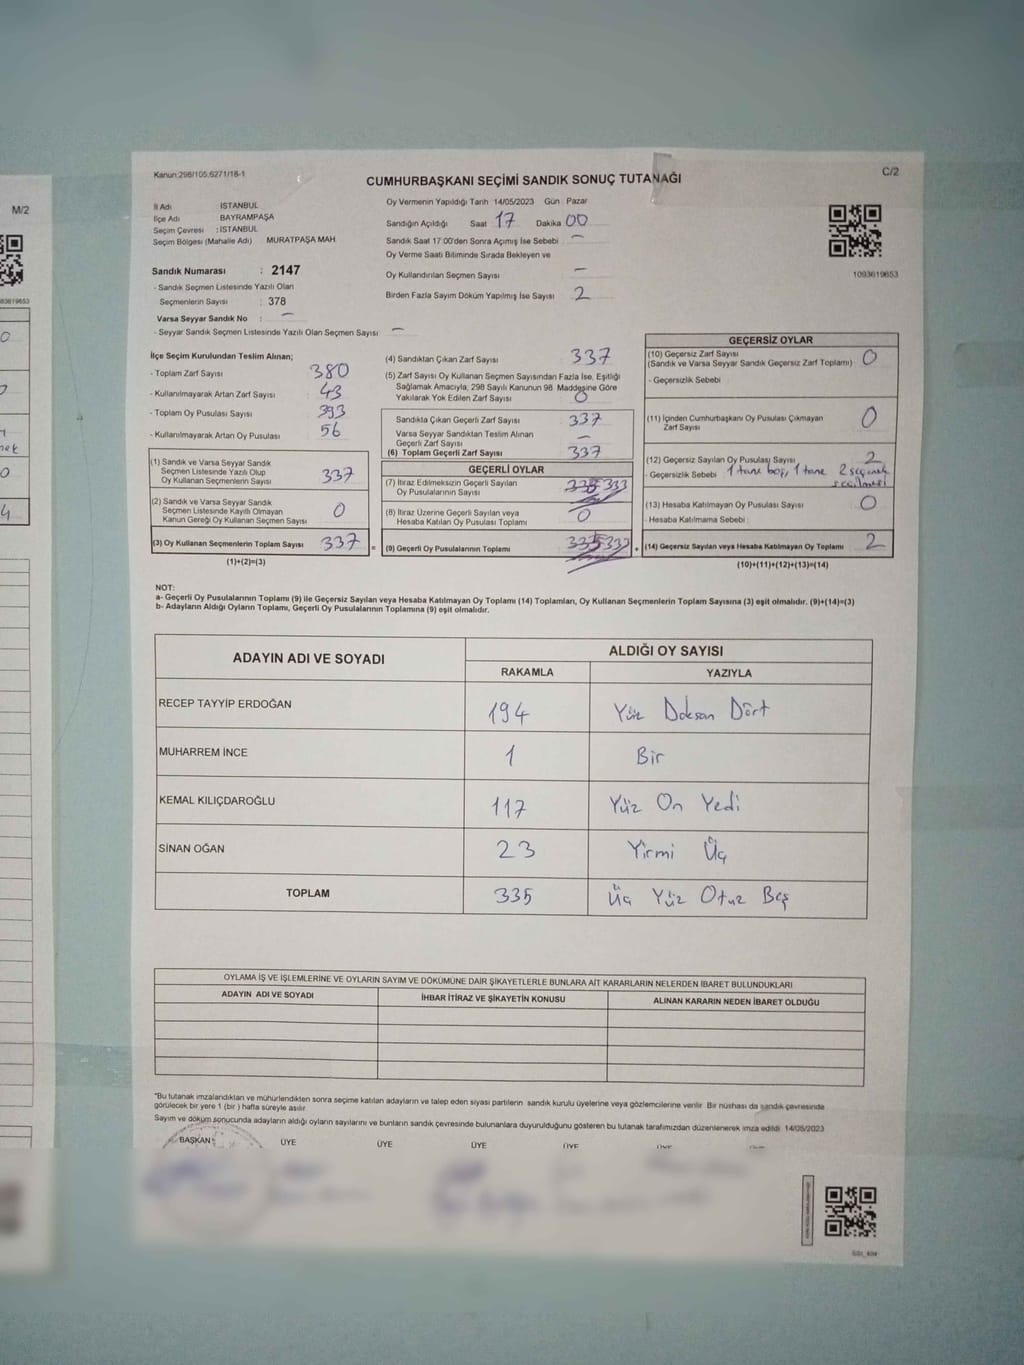 Kanun:298/105;6271/18-1
C/2
CUMHURBAŞKANI SEÇİMİ SANDIK SONUÇ TUTANAĞI
M/2
İl Adı : İSTANBUL
İlçe Adı BAYRAMPAŞA
Seçim Çevresi : İSTANBUL
Seçim Bölgesi (Mahalle Adı) MURATPAŞA MAH.
Sandık Numarası : 2147
- Sandık Seçmen Listesinde Yazılı Olan
Seçmenlerin Sayısı : 378
Varsa Seyyar Sandık No : –
- Seyyar Sandık Seçmen Listesinde Yazılı Olan Seçmen Sayısı –
Oy Vermenin Yapıldığı Tarih 14/05/2023 Gün Pazar
Sandığın Açıldığı Saat 17 Dakika 00
Sandık Saat 17:00'den Sonra Açımış İse Sebebi –
Oy Verme Saati Bitiminde Sırada Bekleyen ve
Oy Kullandırılan Seçmen Sayısı –
Birden Fazla Sayım Döküm Yapılmış İse Sayısı 2
1093619653
İlçe Seçim Kurulundan Teslim Alınan;
- Toplam Zarf Sayısı 380
- Kullanılmayarak Artan Zarf Sayısı 43
- Toplam Oy Pusulası Sayısı 393
- Kullanılmayarak Artan Oy Pusulası 56
(1) Sandık ve Varsa Seyyar Sandık
Seçmen Listesinde Yazılı Olup
Oy Kullanan Seçmenlerin Sayısı 337
(2) Sandık ve Varsa Seyyar Sandık
Seçmen Listesinde Kayıtlı Olmayan
Kanun Gereği Oy Kullanan Seçmen Sayısı 0
(3) Oy Kullanan Seçmenlerin Toplam Sayısı 337 =
(1)+(2)=(3)
(4) Sandıktan Çıkan Zarf Sayısı 337
(5) Zarf Sayısı Oy Kullanan Seçmen Sayısından Fazla İse, Eşitliği
Sağlamak Amacıyla, 298 Sayılı Kanunun 98 Maddesine Göre
Yakılarak Yok Edilen Zarf Sayısı 0
Sandıkta Çıkan Geçerli Zarf Sayısı 337
Varsa Seyyar Sandıktan Teslim Alınan
Geçerli Zarf Sayısı –
(6) Toplam Geçerli Zarf Sayısı 337
GEÇERLİ OYLAR
(7) İtiraz Edilmeksizin Geçerli Sayılan
Oy Pusulalarının Sayısı
(8) İtiraz Üzerine Geçerli Sayılan veya
Hesaba Katılan Oy Pusulası Toplamı 0
(9) Geçerli Oy Pusulalarının Toplamı +
GEÇERSİZ OYLAR
(10) Geçersiz Zarf Sayısı
(Sandık ve Varsa Seyyar Sandık Geçersiz Zarf Toplamı) 0
- Geçersizlik Sebebi
(11) İçinden Cumhurbaşkanı Oy Pusulası Çıkmayan
Zarf Sayısı 0
(12) Geçersiz Sayılan Oy Pusulası Sayısı 2
- Geçersizlik Sebebi 1 tane boş, 1 tane 2 seçenek
seçilmesi
(13) Hesaba Katılmayan Oy Pusulası Sayısı 0
- Hesaba Katılmama Sebebi :
(14) Geçersiz Sayılan veya Hesaba Katılmayan Oy Toplamı 2
(10)+(11)+(12)+(13)=(14)
NOT:
a- Geçerli Oy Pusulalarının Toplamı (9) ile Geçersiz Sayılan veya Hesaba Katılmayan Oy Toplamı (14) Toplamları, Oy Kullanan Seçmenlerin Toplam Sayısına (3) eşit olmalıdır. (9)+(14)=(3)
b- Adayların Aldığı Oyların Toplamı, Geçerli Oy Pusulalarının Toplamına (9) eşit olmalıdır.
ADAYIN ADI VE SOYADI
ALDIĞI OY SAYISI
RAKAMLA YAZIYLA
RECEP TAYYİP ERDOĞAN 194 Yüz Doksan Dört
MUHARREM İNCE 1 Bir
KEMAL KILIÇDAROĞLU 117 Yüz On Yedi
SİNAN OĞAN 23 Yirmi Üç
TOPLAM 335 Üç Yüz Otuz Beş
OYLAMA İŞ VE İŞLEMLERİNE VE OYLARIN SAYIM VE DÖKÜMÜNE DAİR ŞİKAYETLERLE BUNLARA AİT KARARLARIN NELERDEN İBARET BULUNDUKLARI
ADAYIN ADI VE SOYADI İHBAR İTİRAZ VE ŞİKAYETİN KONUSU ALINAN KARARIN NEDEN İBARET OLDUĞU
"Bu tutanak imzalandıktan ve mühürlendikten sonra seçime katılan adayların ve talep eden siyasi partilerin sandık kurulu üyelerine veya gözlemcilerine verilir. Bir nüshası da sandık çevresinde
görülecek bir yere 1 (bir ) hafta süreyle asılır
Sayım ve döküm sonucunda adayların aldığı oyların sayılarını ve bunların sandık çevresinde bulunanlara duyurulduğunu gösteren bu tutanak tarafımızdan düzenlenerek imza edildi. 14/05/2023
BAŞKAN ÜYE ÜYE ÜYE ÜYE ÜYE